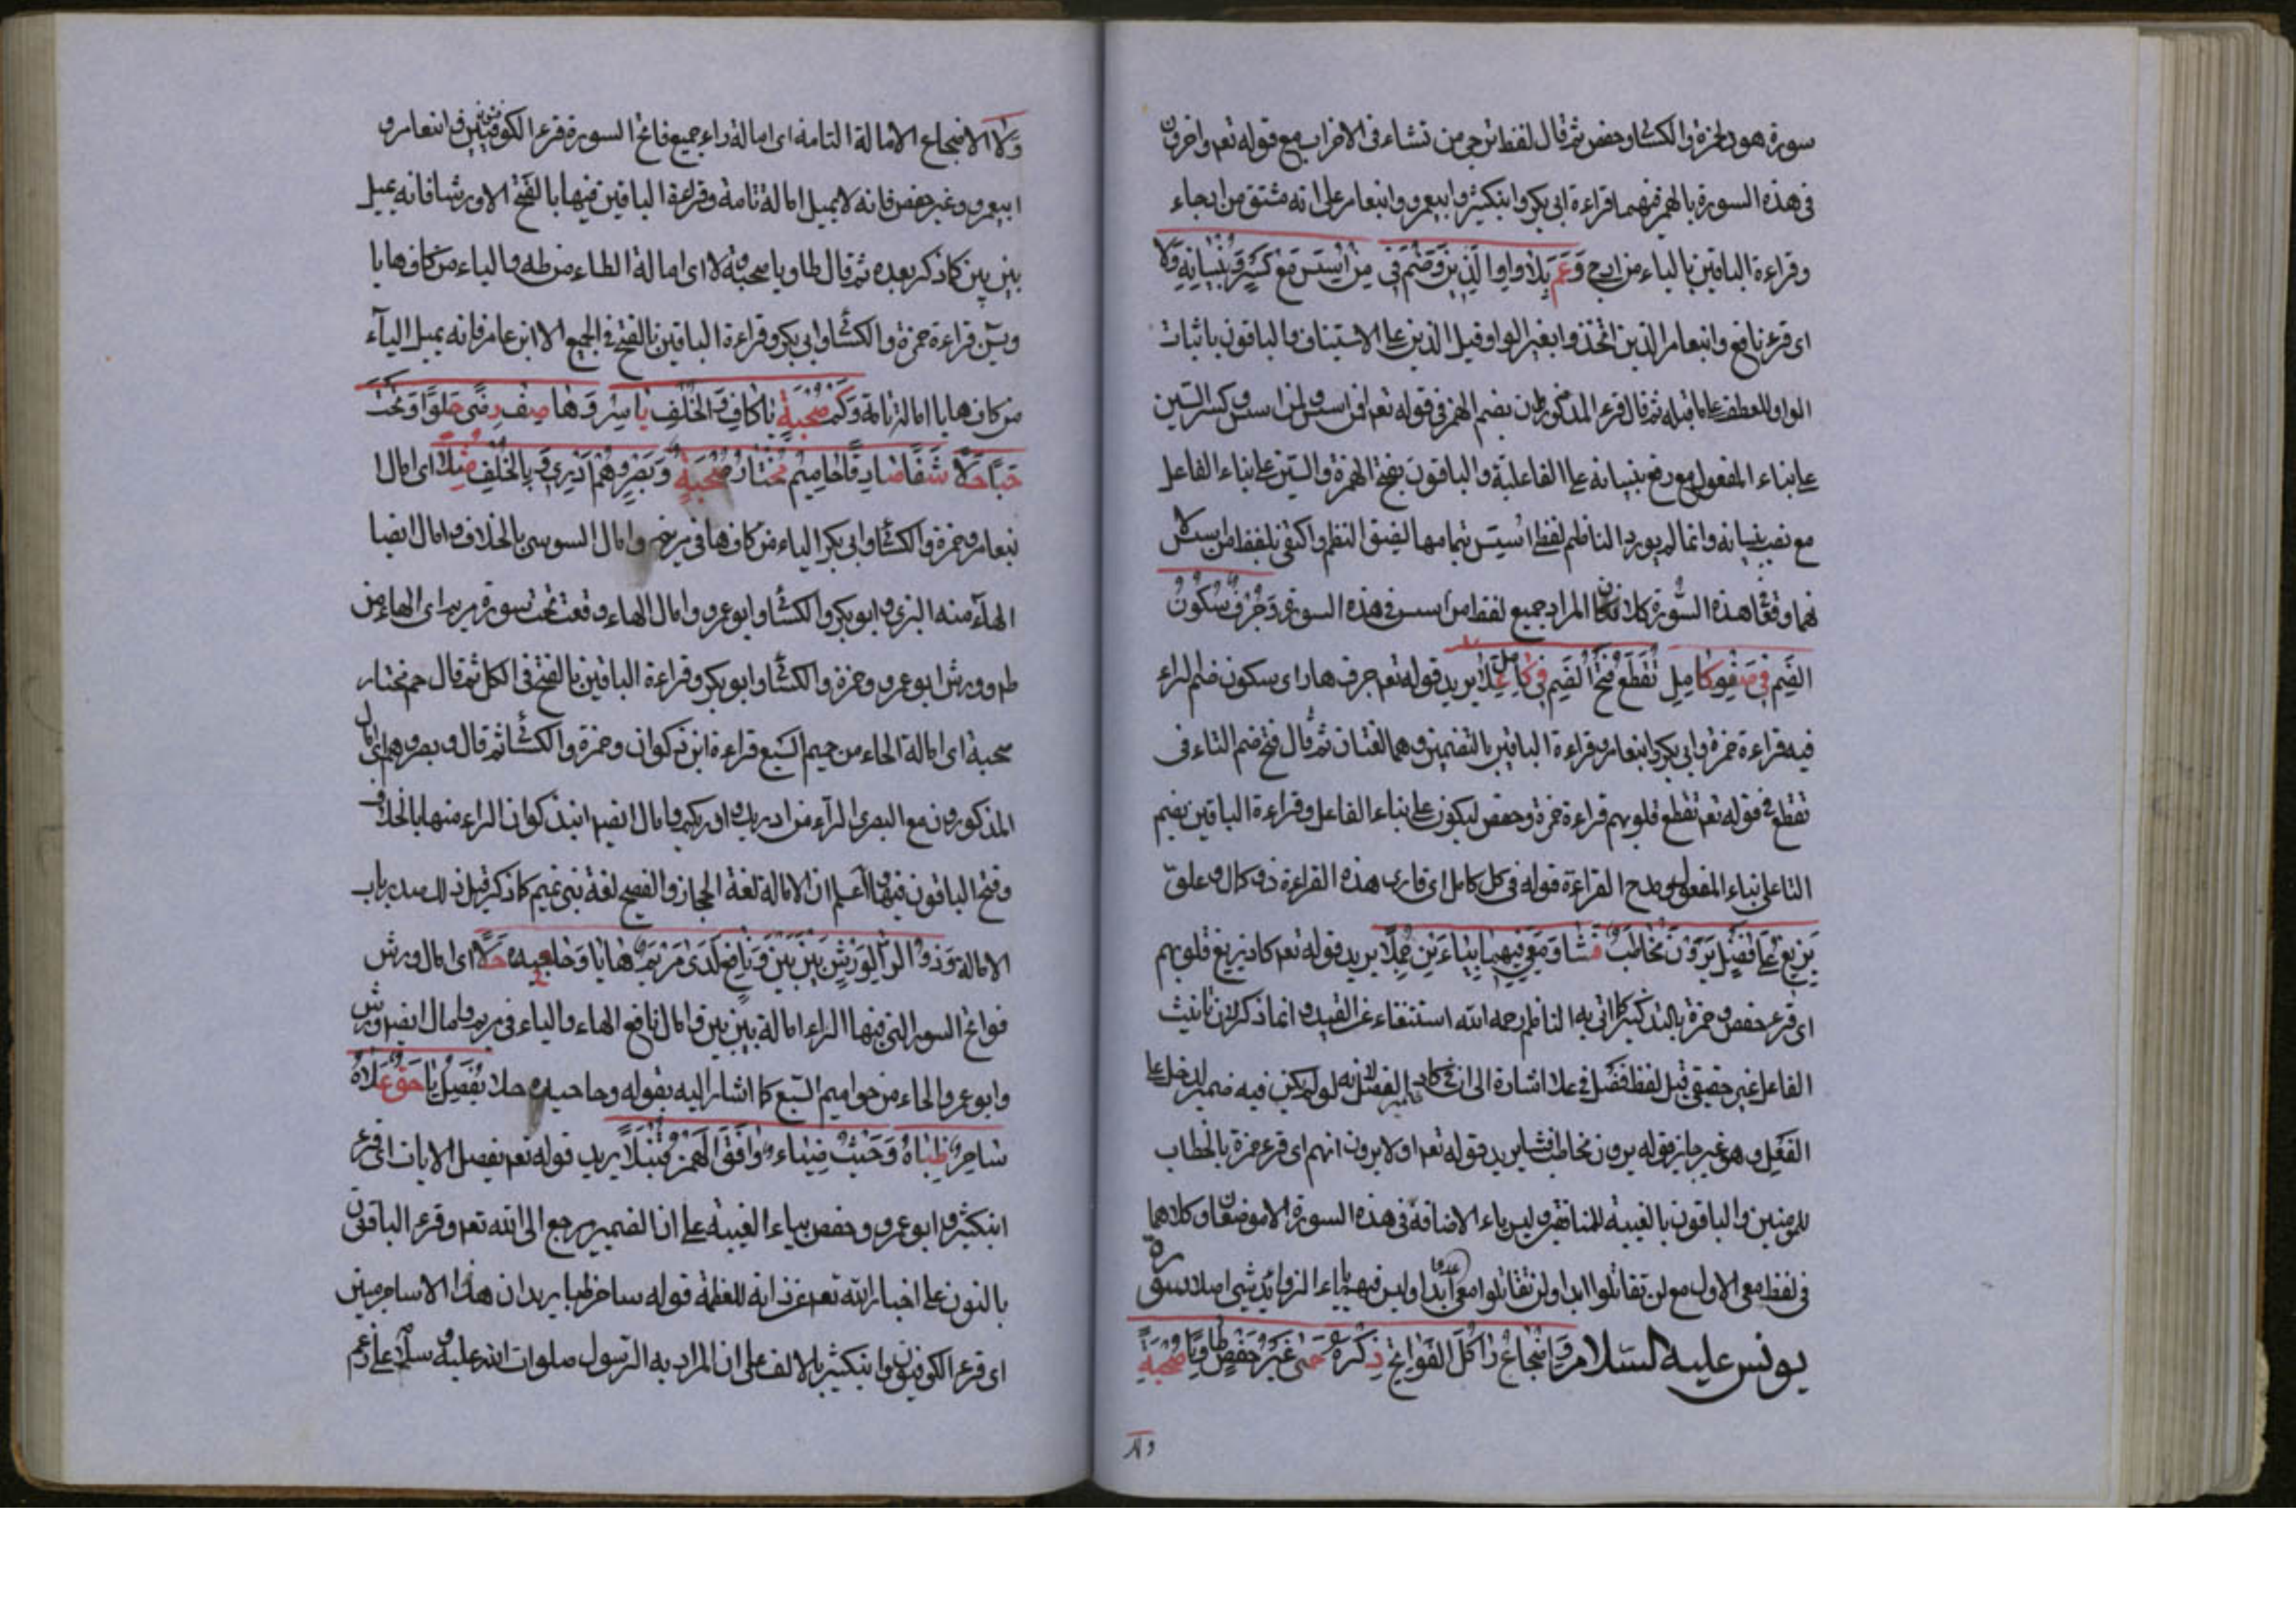 سورة هود لحمزة والكسائى وحفص ثم قال لفظ ترجى من تشاء فى الاحزاب مع قوله تعم واخرون
فى هذه السورة بالهمز فيهما قراءة ابى بكر وابنكثير وابيعمرو وابنعامر على انه مشتق من ارجاء
وقراءة الباقين بالياء من ارجى وَعَمَّ بِلَا وَاوِ الَّذِينَ وَضُمَّ فِى مَنْ اُسِّسَ مَعْ كَسْرٍ وَبُنْيَانُهُ وَلَا
اى قرء نافع وابنعامر الذين اتخذوا بغير الواو قبل الذين على الاستيناف والباقون باثبات
الواو للعطف على ما قبله ثم قال قرء المذكوران بضم الهمز فى قوله تعم افمن اسس ام من اسس وكسر السين
على بناء المفعول مع رفع بنيانه على الفاعلية والباقون بفتح الهمزة والسين على بناء الفاعل
مع نصب بنيانه وانما لم يورد الناظم لفظ اسس بتمامها لضيق النظم واكتفى بلفظ من اسس
فما وقعا هذه السورة كلاهما فكان المراد جميع لفظ من اسس فى هذه السورة وَجُرُفٍ سُكُونُ
الضَّمِ فِى صَفْوِ كَامِلٍ تُقَطَّعَ فَتْحُ الضَّمِ فِى كَامِلٍ عَلَا يريد قوله تعم جرف هار اى سكون ضم الراء
فيه قراءة حمزة وابى بكر وابنعامر وقراءة الباقين بالتضمين وهما لغتان ثم قال فتح ضم التاء فى
تقطع فى قوله تعم تقطع قلوبهم قراءة حمزة وحفص ليكون على بناء الفاعل وقراءة الباقين بضم
التا على بناء المفعول ومدح القراءة قوله فى كل كامل اى قارى هذه القراءة ذو كمال وعلو
يَزِيغُ عَلَى فَصْلٍ يَرَوْنَ مُخَاطَبٌ فَشَا وَمَعِى فِيهَا بِيَاءَيْنِ جُمِّلَا يريد قوله تعم كاد يزيغ قلوبهم
اى قرء حفص وحمزة بالتذكير كما اتى به الناظم رحمه الله استغناء عن القيد وانما ذكر لان تانيث
الفاعل غير حقيقى قيل لفظ فصل فى علا اشارة الى ان فى كاد ضمير الفصل لانه لو لم يكن فيه ضمير لدخل على
الفعل وهو غير جايز قوله يرون مخاطب فشا يريد قوله تعم اولا يرون انهم اى قرء حمزة بالخطاب
للمومنين والباقون بالغيبة للمنافقين وليس ياء الاضافة فى هذه السورة الا موضعان وكلاهما
فى لفظ معى الاول مع لن تقاتلوا ابدا ولن تقاتلوا معى عدوا وليس فيها ياء الزوائد شئ اصلا سورة
يونس عليه السلام وَاِضْجَاعُ رَا كُلِّ الفَوَاتِحِ ذِكْرُهُ حِمًى غَيْرَ حَفْصٍ طَاوَيَا صُحْبَةٌ
٨٩
وَلَا الاضجاع الامالة التامة اى امالة راء جميع فاتح السورة قرء الكوفيين وابنعامر و
ابيعمرو وغير حفص فانه لا يميل امالة تامة وقراءة الباقين فيها بالفتح الا ورشا فانه يميل
بين بين كما ذكر بعده ثم قال طا ويا صحبة ولا اى امالة الطاء من طه والياء من كاف ها يا
ويس قراءة حمزة والكسائى وابى بكر وقراءة الباقين بالفتح فى الجميع الا ابن عامر فانه يميل الياء
من كاف ها يا امالة تامة وَكَمْ صُحْبَةٍ يَا كَافِ وَالخُلْفُ يَاسِرٌ وَهَا صِفْ رِضًى حُلْوًا وَتَحْتَ
جَنًا حَلَا شَفَا صَادِقًا حَامِيمُ مُخْتَارُ صُحْبَةٍ وَبَصْرٍ وَهُمْ اَدْرِى وَبِالخُلْفِ مُثِّلَا اى امال
ابنعامر وحمزة والكسائى وابى بكر الياء من كاف ها فى مريم وامال السوسى بالخلاف وامال ايضا
الهاء منه البزى وابو بكر والكسائى وابو عمرو وامال الهاء وقعت تحت سورة مريم اى الهاء من
طه وورش ابو عمرو وحمزة والكسائى وابو بكر وقراءة الباقين بالفتح فى الكل ثم قال حم مختار
صحبة اى امالة الحاء من حميم السبع قراءة ابن ذكوان وحمزة والكسائى ثم قال وبصر وهم اى امال
المذكورون مع البصرى الراء من ادريك وادريكم وامال ايضا ابنذكوان الراء منها بالخلاف
وفتح الباقون فيها واعلم ان الامالة لغة الحجاز والفصيح لغة بنى تميم كما ذكر قبل ذلك صدر باب
الامالة وَذُو الرَّا لِوَرْشٍ بَيْنَ بَيْنَ وَنَافِعٌ لَدَى مَرْيَمٍ هَا يَا وَحَا جِيدُهُ حَلَا اى امال ورش
فواتح السور التى فيها الراء امالة بين بين وامال نافع الهاء والياء فى مريم وامال ايضا ورش
وابو عمرو الحاء من حواميم السبع كما اشار اليه بقوله وحا جيده حلا نُفَصِّلُ يَا حَقٍّ عُلَاهُ
سَاحِرٌ ظُبًاهُ وَحَيْثُ ضِيَاءً وَافَقَ الهَمْزُ قُنْبُلَا يريد قوله تعم يفصل الايات اى قرء
ابنكثير وابو عمرو وحفص بياء الغيبة على ان الضمير يرجع الى الله تعم وقرء الباقون
بالنون على اخبار الله تعم عن ذاته للعظمة قوله ساحر ظبا يريد ان هذا الا ساحر مبين
اى قرء الكوفيون وابنكثير بالالف على ان المراد به الرسول صلوات الله عليه وسلم